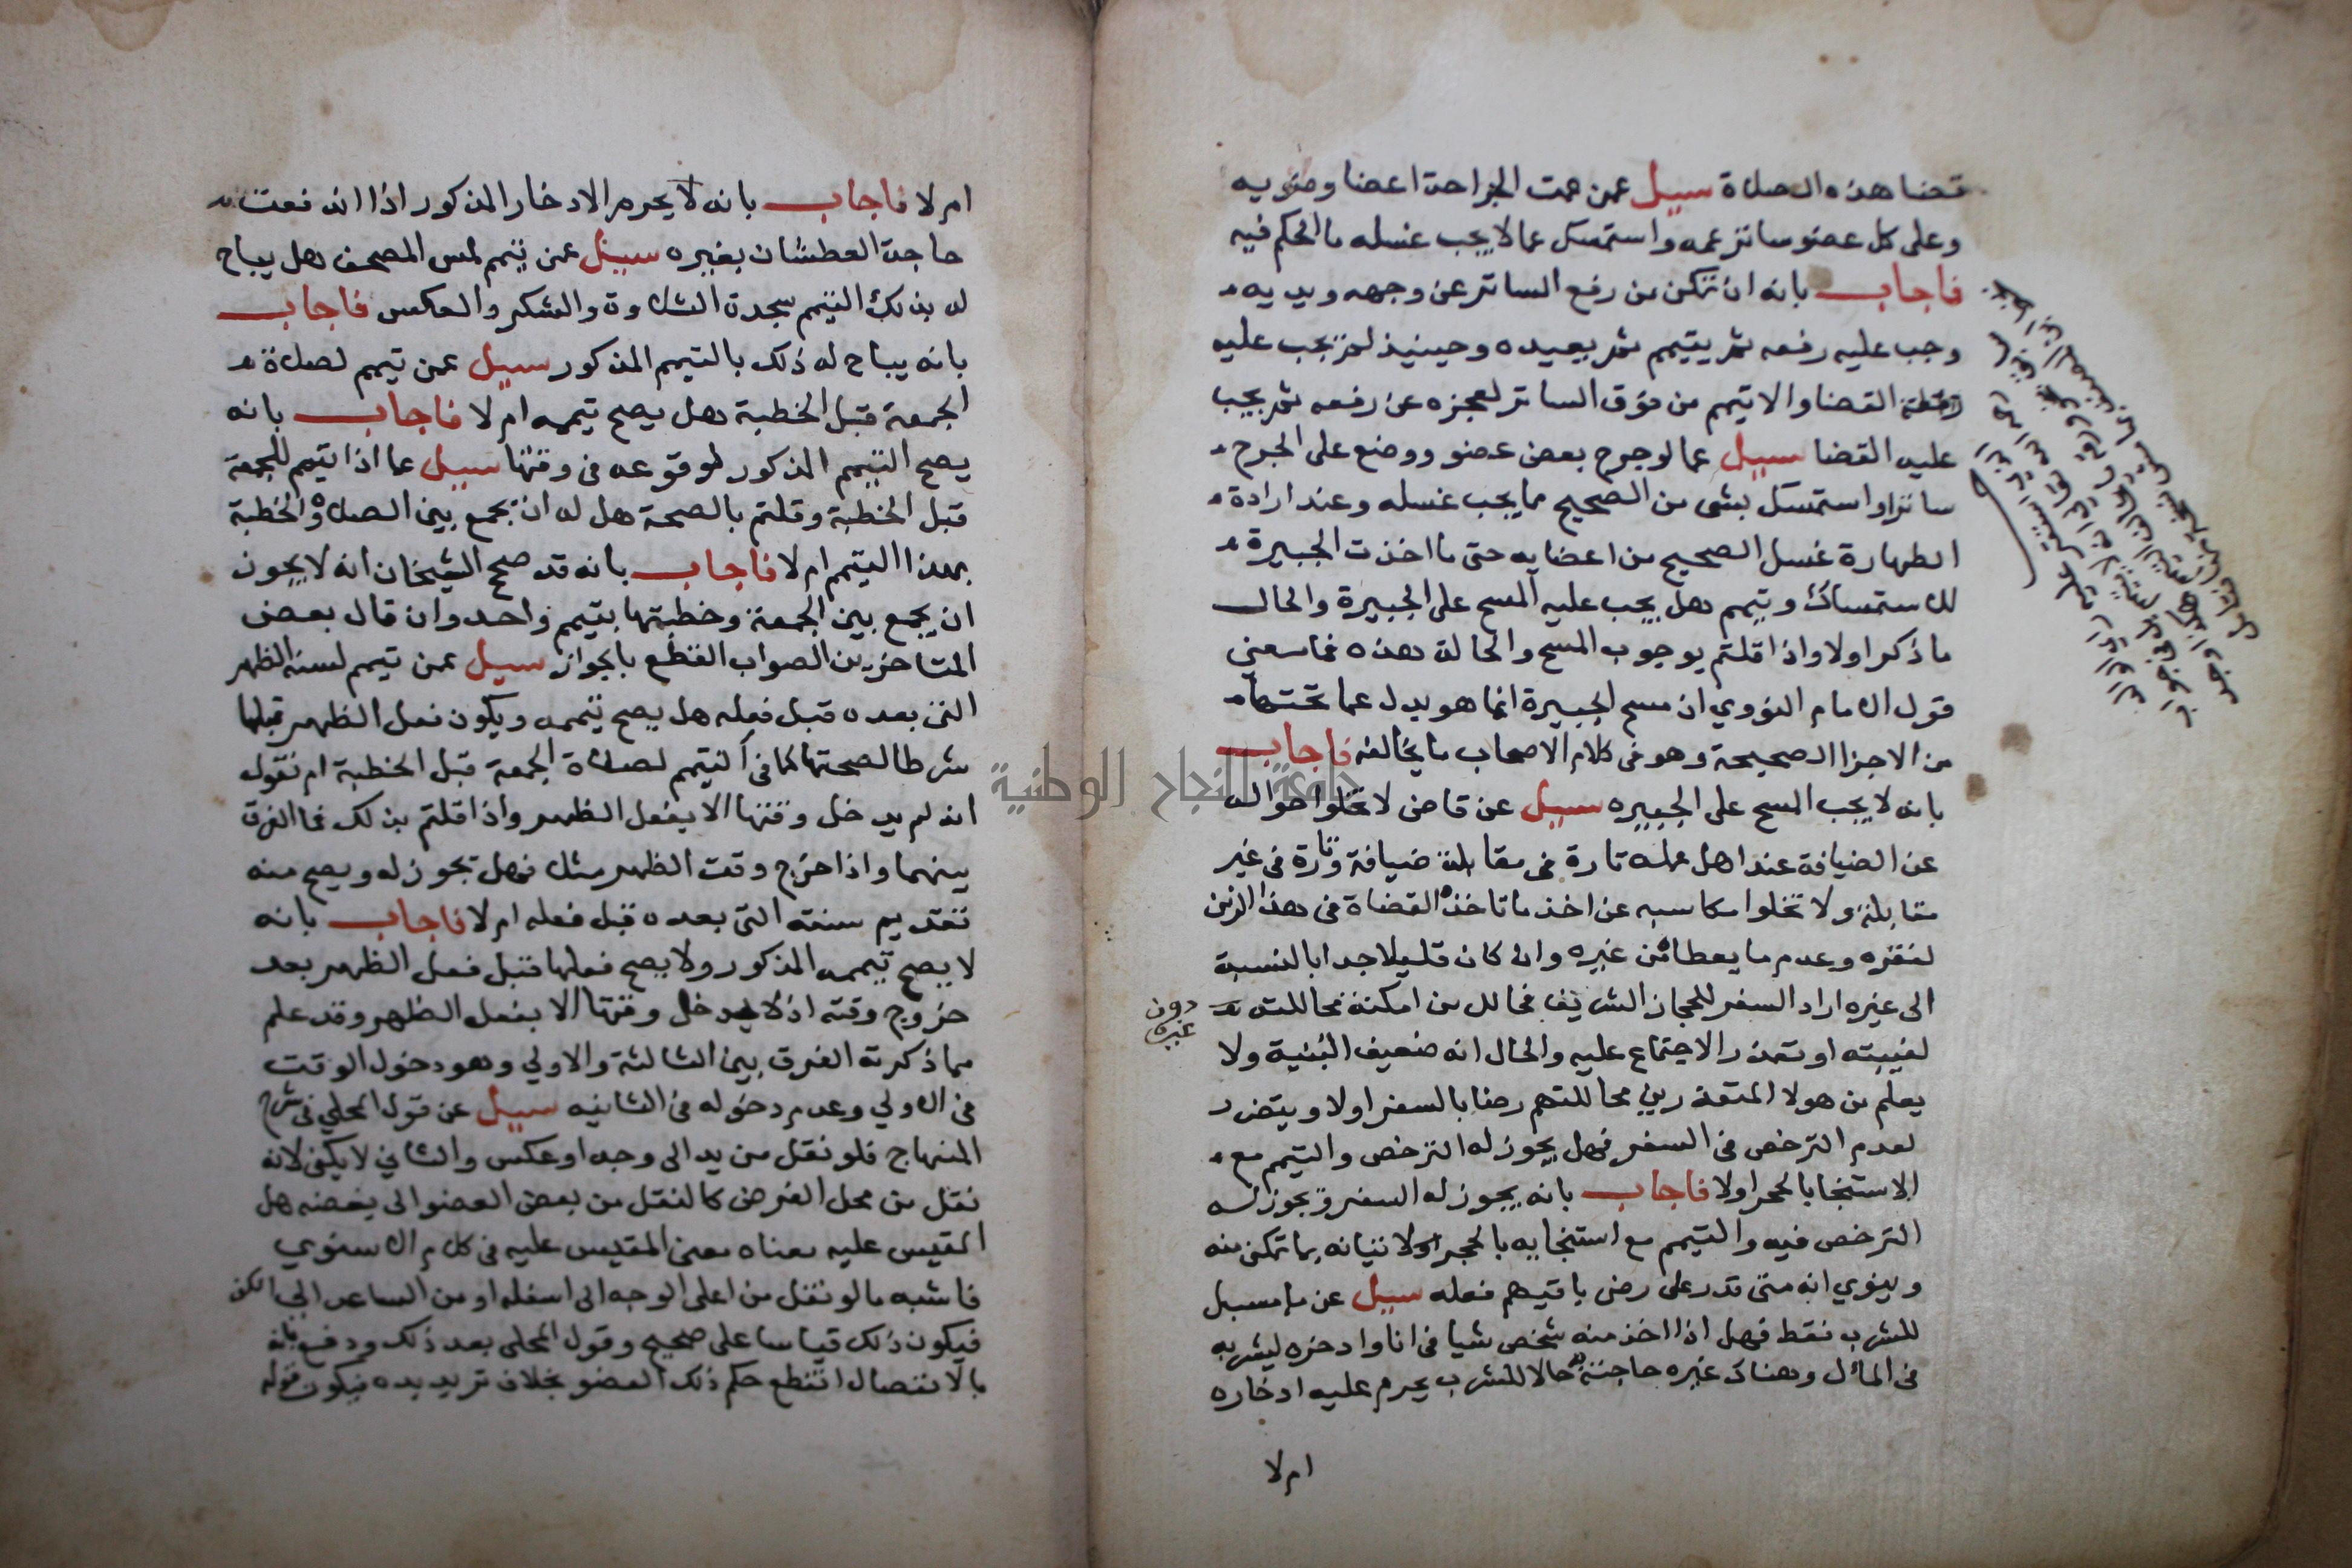 قضا هذه الصلاة سيل عمن عمت الجراحة اعضا وضويه
وعلى كل عضو ساتر عمه واستمسك عما لا يجب غسله ما الحكم فيه
فاجاب بانه ان تمكن من رفع الساتر عن وجهه ويديه
وجب عليه رفعه ثم يتيمم ثم يعيده وحينيذ لم يجب عليه
القضا والا تيمم من فوق الساتر لعجزه عن رفعه ثم يجب
عليه القضا سيل عما لو جرح بعض عضو ووضع على الجرح
ساترا واستمسك بشي من الصحيح مما يجب غسله وعند ارادة
الطهارة غسل الصحيح من اعضايه حتى ما اخذت الجبيرة
للاستمساك وتيمم هل يجب عليه المسح على الجبيرة والحال
ما ذكر اولا واذا قلتم بوجوب المسح والحالة هذه فما معني
قول الامام النووي ان مسح الجبيرة انما هو بدل عما تحتها
من الاجزا الصحيحة وهو في كلام الاصحاب ما يخالفه فاجاب
بانه لا يجب المسح على الجبيره سيل عن قاض لا تخلوا احواله
عن الضيافة عند اهل عمله تارة في مقابلة ضيافة وتارة في غير
مقابلة ولا تخلوا مكاسبه عن اخذ ما تاخذه القضاة في هذا الزمن
لفقره وعدم ما يعطاه من غيره وان كان قليلا جدا بالنسبة
الى غيره اراد السفر للحجاز الشريف فحالل من امكنه محاللته
دون غيره
لغيبته او تعذر الاجتماع عليه والحال انه ضعيف البنية ولا
يعلم من هولا المتعذرين محاللتهم رضا بالسفر اولا ويتضرر
لعدم الترخص في السفر فهل يجوز له الترخص والتيمم مع
الاستنجا بالحجر اولا فاجاب بانه يجوز له السفر ويجوز له
الترخص فيه والتيمم مع استنجايه بالحجر اولا تيانه بما تمكن منه
وينوي انه متى قدر على رضى باقيهم فعله سيل عن ما مسبل
للشرب فقط فهل اذا اخذ منه شخص شيا في انا وادخره ليشربه
في المال وهناك غيره حاجته حالا للشرب يحرم عليه ادخاره
ام لا
ام لا فاجاب بانه لا يحرم الادخار المذكور اذا اندفعت
حاجة العطشان بغيره سيل عمن تيمم لمس المصحف هل يباح
له بذلك التيمم سجدة التلاوة والشكر والعكس فاجاب
بانه يباح له ذلك بالتيمم المذكور سيل عمن تيمم لصلاة
الجمعة قبل الخطبة هل يصح تيممه ام لا فاجاب بانه
يصح التيمم المذكور لوقوعه في وقتها سيل عما اذا تيمم للجمعة
قبل الخطبة وقلتم بالصحة هل له ان يجمع بين الصلاة والخطبة
بهذا التيمم ام لا فاجاب بانه قد صحح الشيخان انه لا يجوز
ان يجمع بين الجمعة وخطبتها بتيمم واحد وان قال بعض
المتاخرين الصواب القطع بالجواز سيل عمن تيمم لسنة الظهر
التي بعده قبل فعله هل يصح تيممه ويكون فعل الظهر قبلها
شرطا لصحتها كما في التيمم لصلاة الجمعة قبل الخطبة ام نقول
انه لم يدخل وقتها الا بفعل الظهر واذا قلتم بذلك فما الفرق
بينهما واذا خرج وقت الظهر مثلا فهل تجوز له ويصح منه
تقديم سنته التي بعده قبل فعله ام لا فاجاب بانه
لا يصح تيممه المذكور ولا يصح فعلها قبل فعل الظهر بعد
خروج وقته اذ لا يدخل وقتها الا بفعل الظهر وقد علم
مما ذكرته الفرق بين الثالثة والاولي وهو دخول الوقت
في الاولي وعدم دخوله في الثانيه سيل عن قول المحلي في شرح
المنهاج فلو نقل من يد الى وجه او عكس والثاني لا يكفي لانه
نقل من محل الفرض كالنقل من بعض العضو الى بعضه هل
المقيس عليه معناه معنى المقيس عليه في كلام الاسنوي
فاشبه ما لو نقل من اعلى الوجه الى اسفله او من الساعد الى الكف
فيكون ذلك قياسا على صحيح وقول المحلي بعد ذلك ودفع بانه
بالانفصال انقطع حكم ذلك العضو بخلاف ترديده فيكون قوله